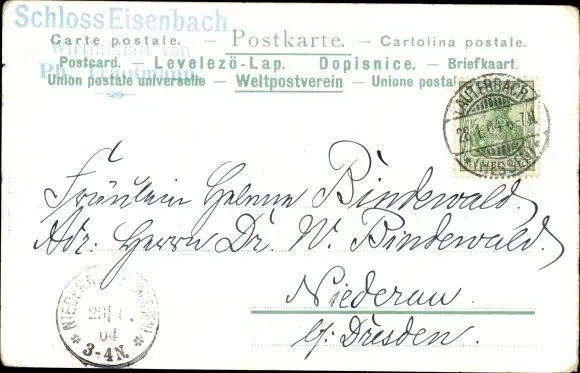 Schloss Eisenbach
Wirtschaft von
Ph. Trautmann
Carte postale. — Postkarte. — Cartolina postale.
Postcard. — Levelező-Lap. Dopisnice. — Briefkaart.
Union postale universelle — Weltpostverein — Unione postal
LAUTERBACH
28.1.04.6-7N.
(HESSEN)
Fräulein Helene Bindewald
Adr. Herrn Dr. W. Bindewald.
Niederau
b/. Dresden.
29/1.
04
3-4N.